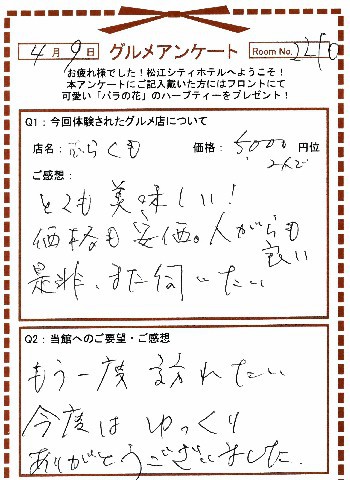 4月9日 グルメアンケート Room No.
お疲れ様でした！松江シティホテルへようこそ！
本アンケートにご記入戴いた方にはフロントにて
可愛い「バラの花」のハーブティーをプレゼント！
Q1：今回体験されたグルメ店について
店名： 価格：5,000円位
2人で
ご感想：
とても美味しい！
価格も安価。人がらも
良い
是非、また伺いたい
Q2：当館へのご要望・ご感想
もう一度訪れたい
今度はゆっくり
ありがとうございました。